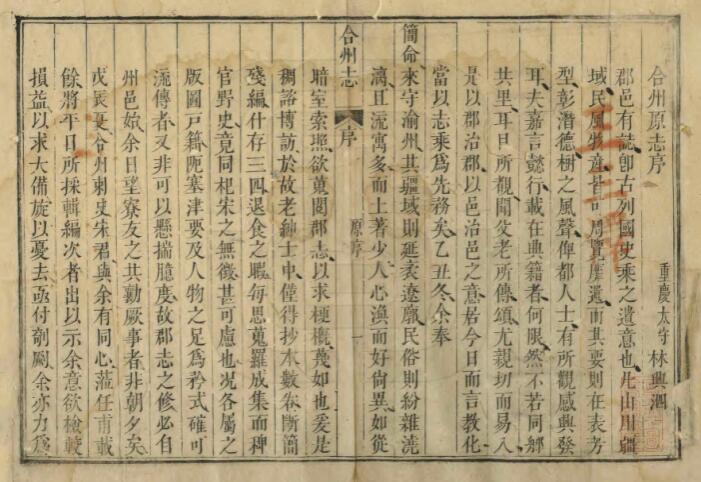 合州原志序
重慶太守林興泗
郡邑有誌卽古列國史乘之遺意也凡山川疆
域民風物產皆可周覽靡遺而其要則在表芳
型彰潛德樹之風聲俾都人士有所觀感興發
耳夫嘉言懿行載在典籍者何限然不若同鄉
共里耳目所觀聞父老所傳頌尤親切而易入
是以郡治郡以邑治邑之意居今日而言敎化
當以志乘爲先務矣乙丑冬余奉
簡命來守渝州其疆域則延袤遼廓民俗則紛雜澆
漓且流寓多而土著少人心渙而好尙異如從
合州志
序
原序
一
暗室索照欲蒐閱郡志以求梗槪蔑如也爰是
稠諮博訪於故老紳士中僅得抄本數卷斷簡
殘編什存三四退食之暇每思蒐羅成集而稗
官野史竟同杞宋之無徵甚可慮也况各屬之
版圖戸籍阨塞津要及人物之足爲矜式確可
流傳者又非可以懸揣臆度故郡志之修必自
州邑始余日望寮友之共勷厥事者非朝夕矣
戊辰夏合州刺史宋君與余有同心蒞任甫載
餘將平日所採輯編次者出以示余意欲檢較
損益以求大備旋以憂去亟付剞劂余亦力爲